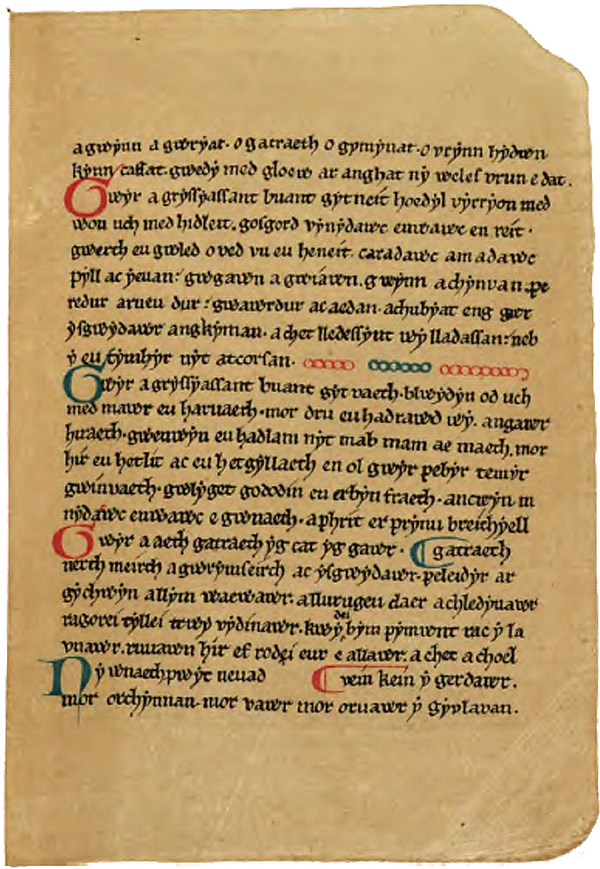 agwẏnn a gwrẏat. o gatraeth o gymẏnat. o vrẏnn hẏdwn
kẏnn caffat. gwedẏ med gloew ar anghat nẏ weles vrun e dat.
Gwẏr a grẏssẏassant buant gẏtneit hoedẏl vẏrrẏon med
won uch med hidleit. gosgord vẏnẏdawc enwawc en reit.
gwerch eu gwled o ved vu eu heneit. caradawc amadawc
pẏll ac ẏeuan. gwgawn a gwiawn. gwẏnn a chẏnvan. pe
redur arueu dur. gwawrdur ac aedan. achubẏat eng gwr
ẏsgwẏdawr angkẏman. a chet lledessẏnt wẏ lladassan. neb
ẏ eu tẏmhẏr nẏt atcorsan.
Gwẏr a grẏssẏassant buant gẏt vaeth. blwẏdẏn od uch
med mawr eu haruaeth. mor dru eu hadrawd wẏ. angawr
hiraeth. gwenwẏn eu hadlam nẏt mab mam ae maeth. mor
hir eu hetlit ac eu hetgẏllaeth en ol gwẏr pebẏr temẏr
gwinvaeth. gwlẏget gododin en erbẏn fraeth. ancwẏn m
nẏdawc enwawc e gwnaeth. a phrit er prẏnu breichẏell
Gwẏr a aeth gatraeth ẏg cat ẏg gawr. gatraeth
nerth meirch a gwrẏmseirch ac ẏsgwẏdawr. peleidẏr ar
gẏchwẏn a llẏm waewawr. a llurugeu claer a chledẏuawr
ragorei tẏllei trwẏ vẏdinawr. kwẏdei bẏm pẏmwnt rac ẏ la
vnawr. ruuawn hir ef rodei eur e allawr. a chet a choel
Nẏ wnaethpwẏt neuad vein kein ẏ gerdawr.
mor orchẏnnan. mor vawr mor oruawr ẏ gẏvlavan.